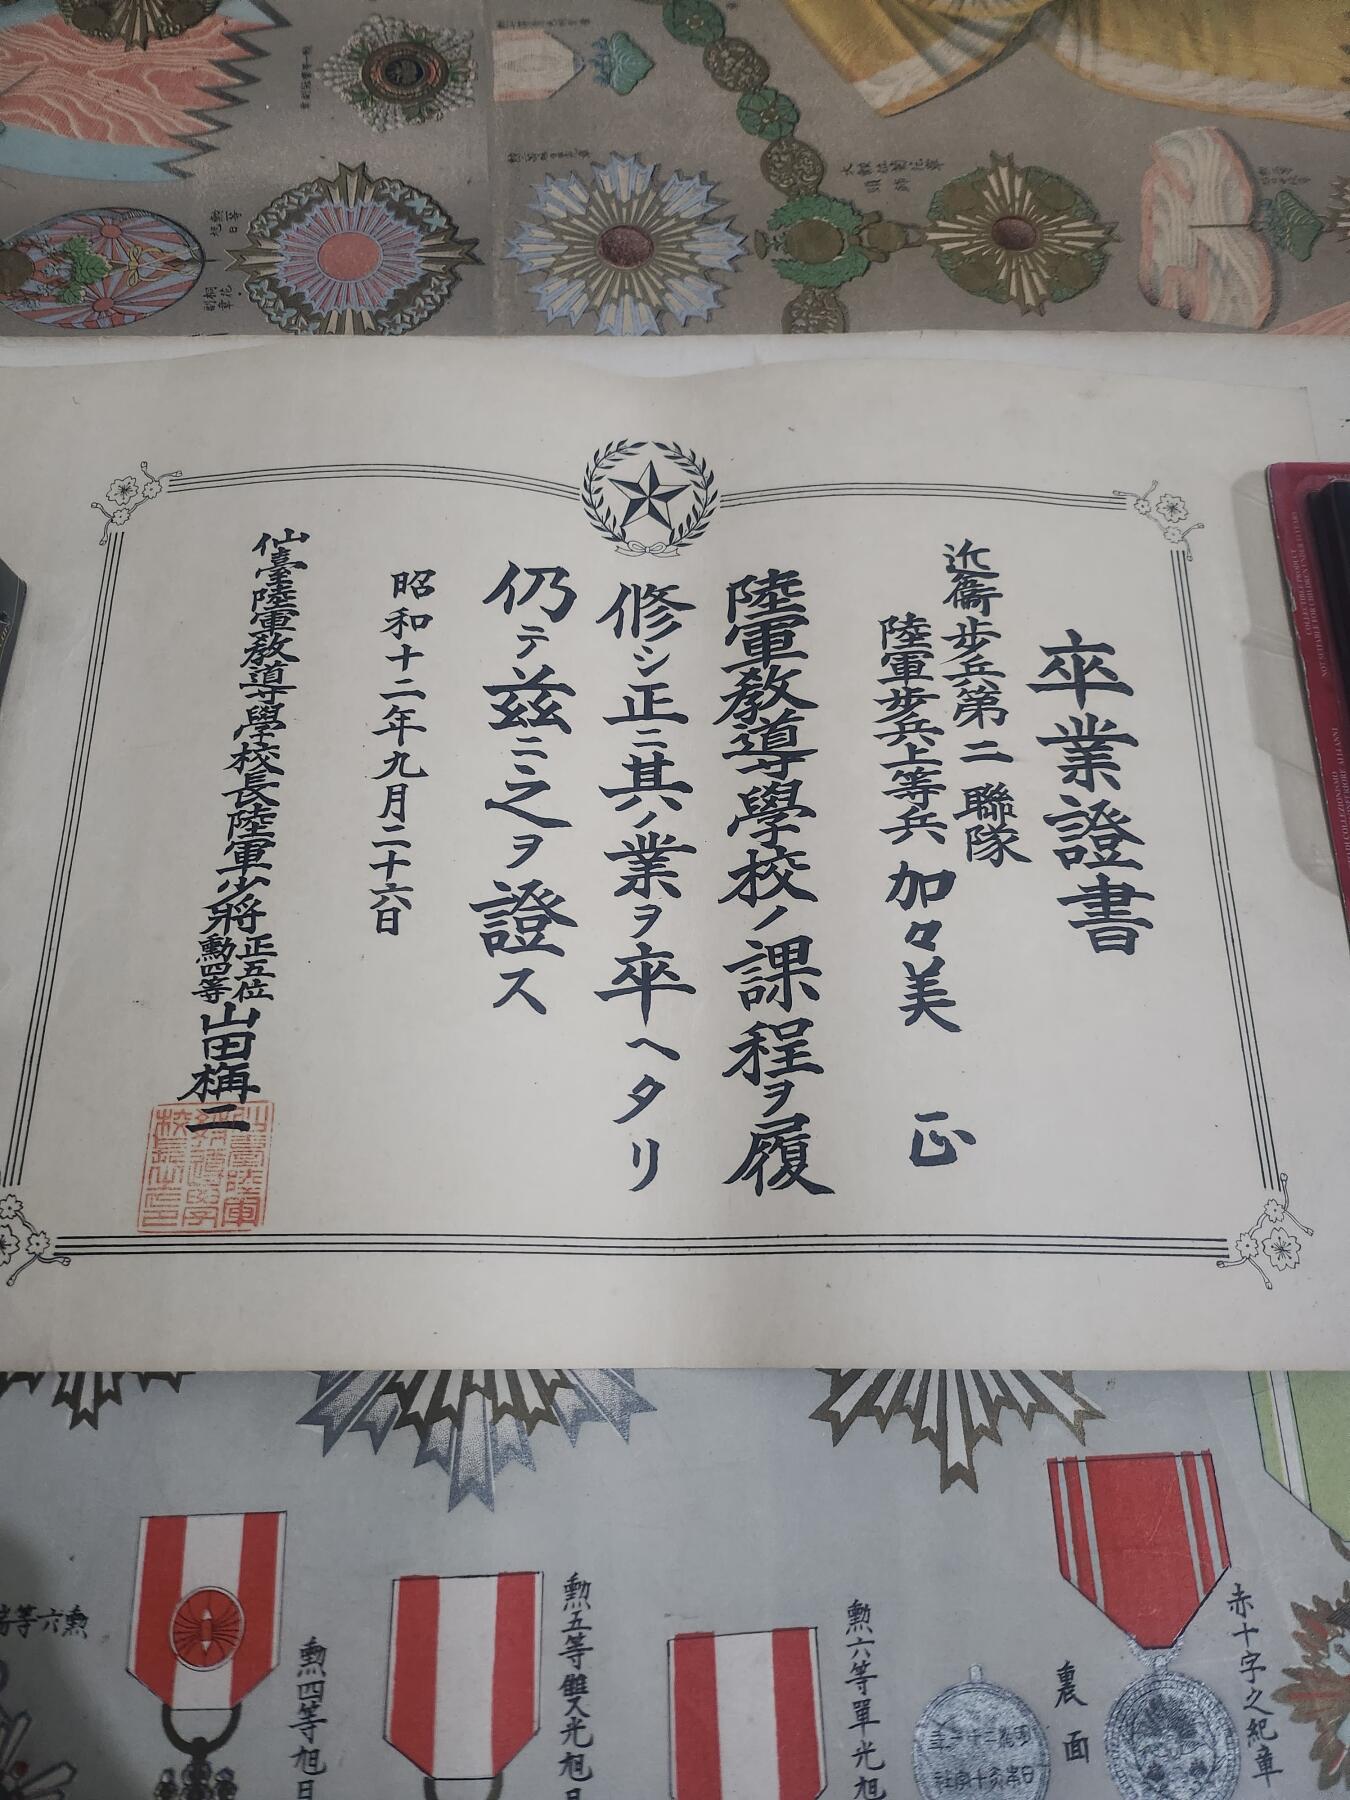 卒業證書
近衞歩兵第二聯隊
陸軍歩兵上等兵 加々美 正
陸軍教導學校ノ課程ヲ履
修シ正ニ其ノ業ヲ卒ヘタリ
仍テ茲ニ之ヲ證ス
昭和十二年九月二十六日
仙臺陸軍教導學校長陸軍少將正五位勲四等山田梅二
大綬桐花章
頭飾
赤十字之紀章
裏面
勲六等單光旭
勲五等雙光旭日
勲四等旭日
勲六等
COLLECTIBLE PRODUCT
NOT SUITABLE FOR CHILDREN UNDER 14 YEARS